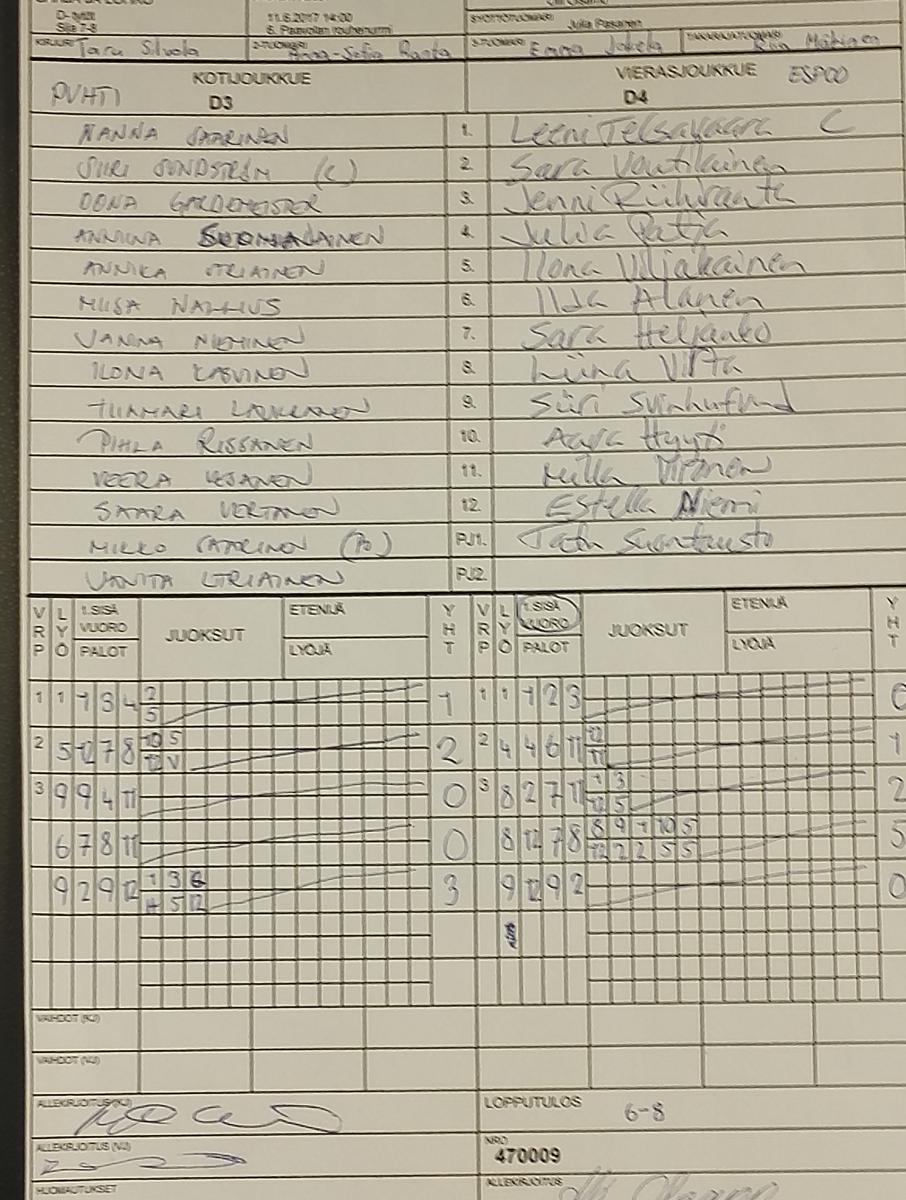 11.6.2017 14:00
Sija 7-8
Julia Pasanen
Tara Silvola Anna-Sofia Ranta Emma Jokela Mäkinen
KOTIJOUKKUE VIERASJOUKKUE ESPOO
PUHTI D3 D4
NANNA SAARINEN 1. Leeni Telsavaara C
SIIRI SUNDSTRÖM (C) 2. Sara Voutilainen
OONA GARDEMEISTER 3. Jenni Riihiranta
ANNINA SUOMALAINEN 4. Julia Patja
ANNIKA UTRIAINEN 5. Ilona Viljakainen
MIISA 6. Iida Alanen
VANNA NIEMINEN 7. Sara Heljanko
ILONA 8. Liina Virta
9. Siiri Svinhufvud
PIHLA RISSANEN 10. Hyyti
VEERA 11. Milla
SAARA VERTANEN 12. Estella Niemi
MIKKO (PJ) PJ1.
UTRIAINEN PJ2.
VRP LYÖ 1.SISÄ VUORO PALOT JUOKSUT ETENIJÄ LYÖJÄ YHT VRP LYÖ 1.SISÄ VUORO PALOT JUOKSUT ETENIJÄ LYÖJÄ YHT
1 1 1 3 4 2 1 1 1 1 2 3 0
5
2 5 12 7 8 10 5 2 2 4 4 6 11 12 1
12 V 11
3 9 9 4 11 0 3 8 2 7 11 1 3 2
12 5
6 7 8 11 0 8 12 7 8 8 9 1 10 5 5
12 2 2 5 5
9 2 9 12 1 3 6 3 9 12 9 2 0
5 12
VAIHDOT (KJ)
VAIHDOT (VJ)
ALLEKIRJOITUS (KJ) LOPPUTULOS 6-8
ALLEKIRJOITUS (VJ) NRO
470009
HUOMAUTUKSET ALLEKIRJOITUS